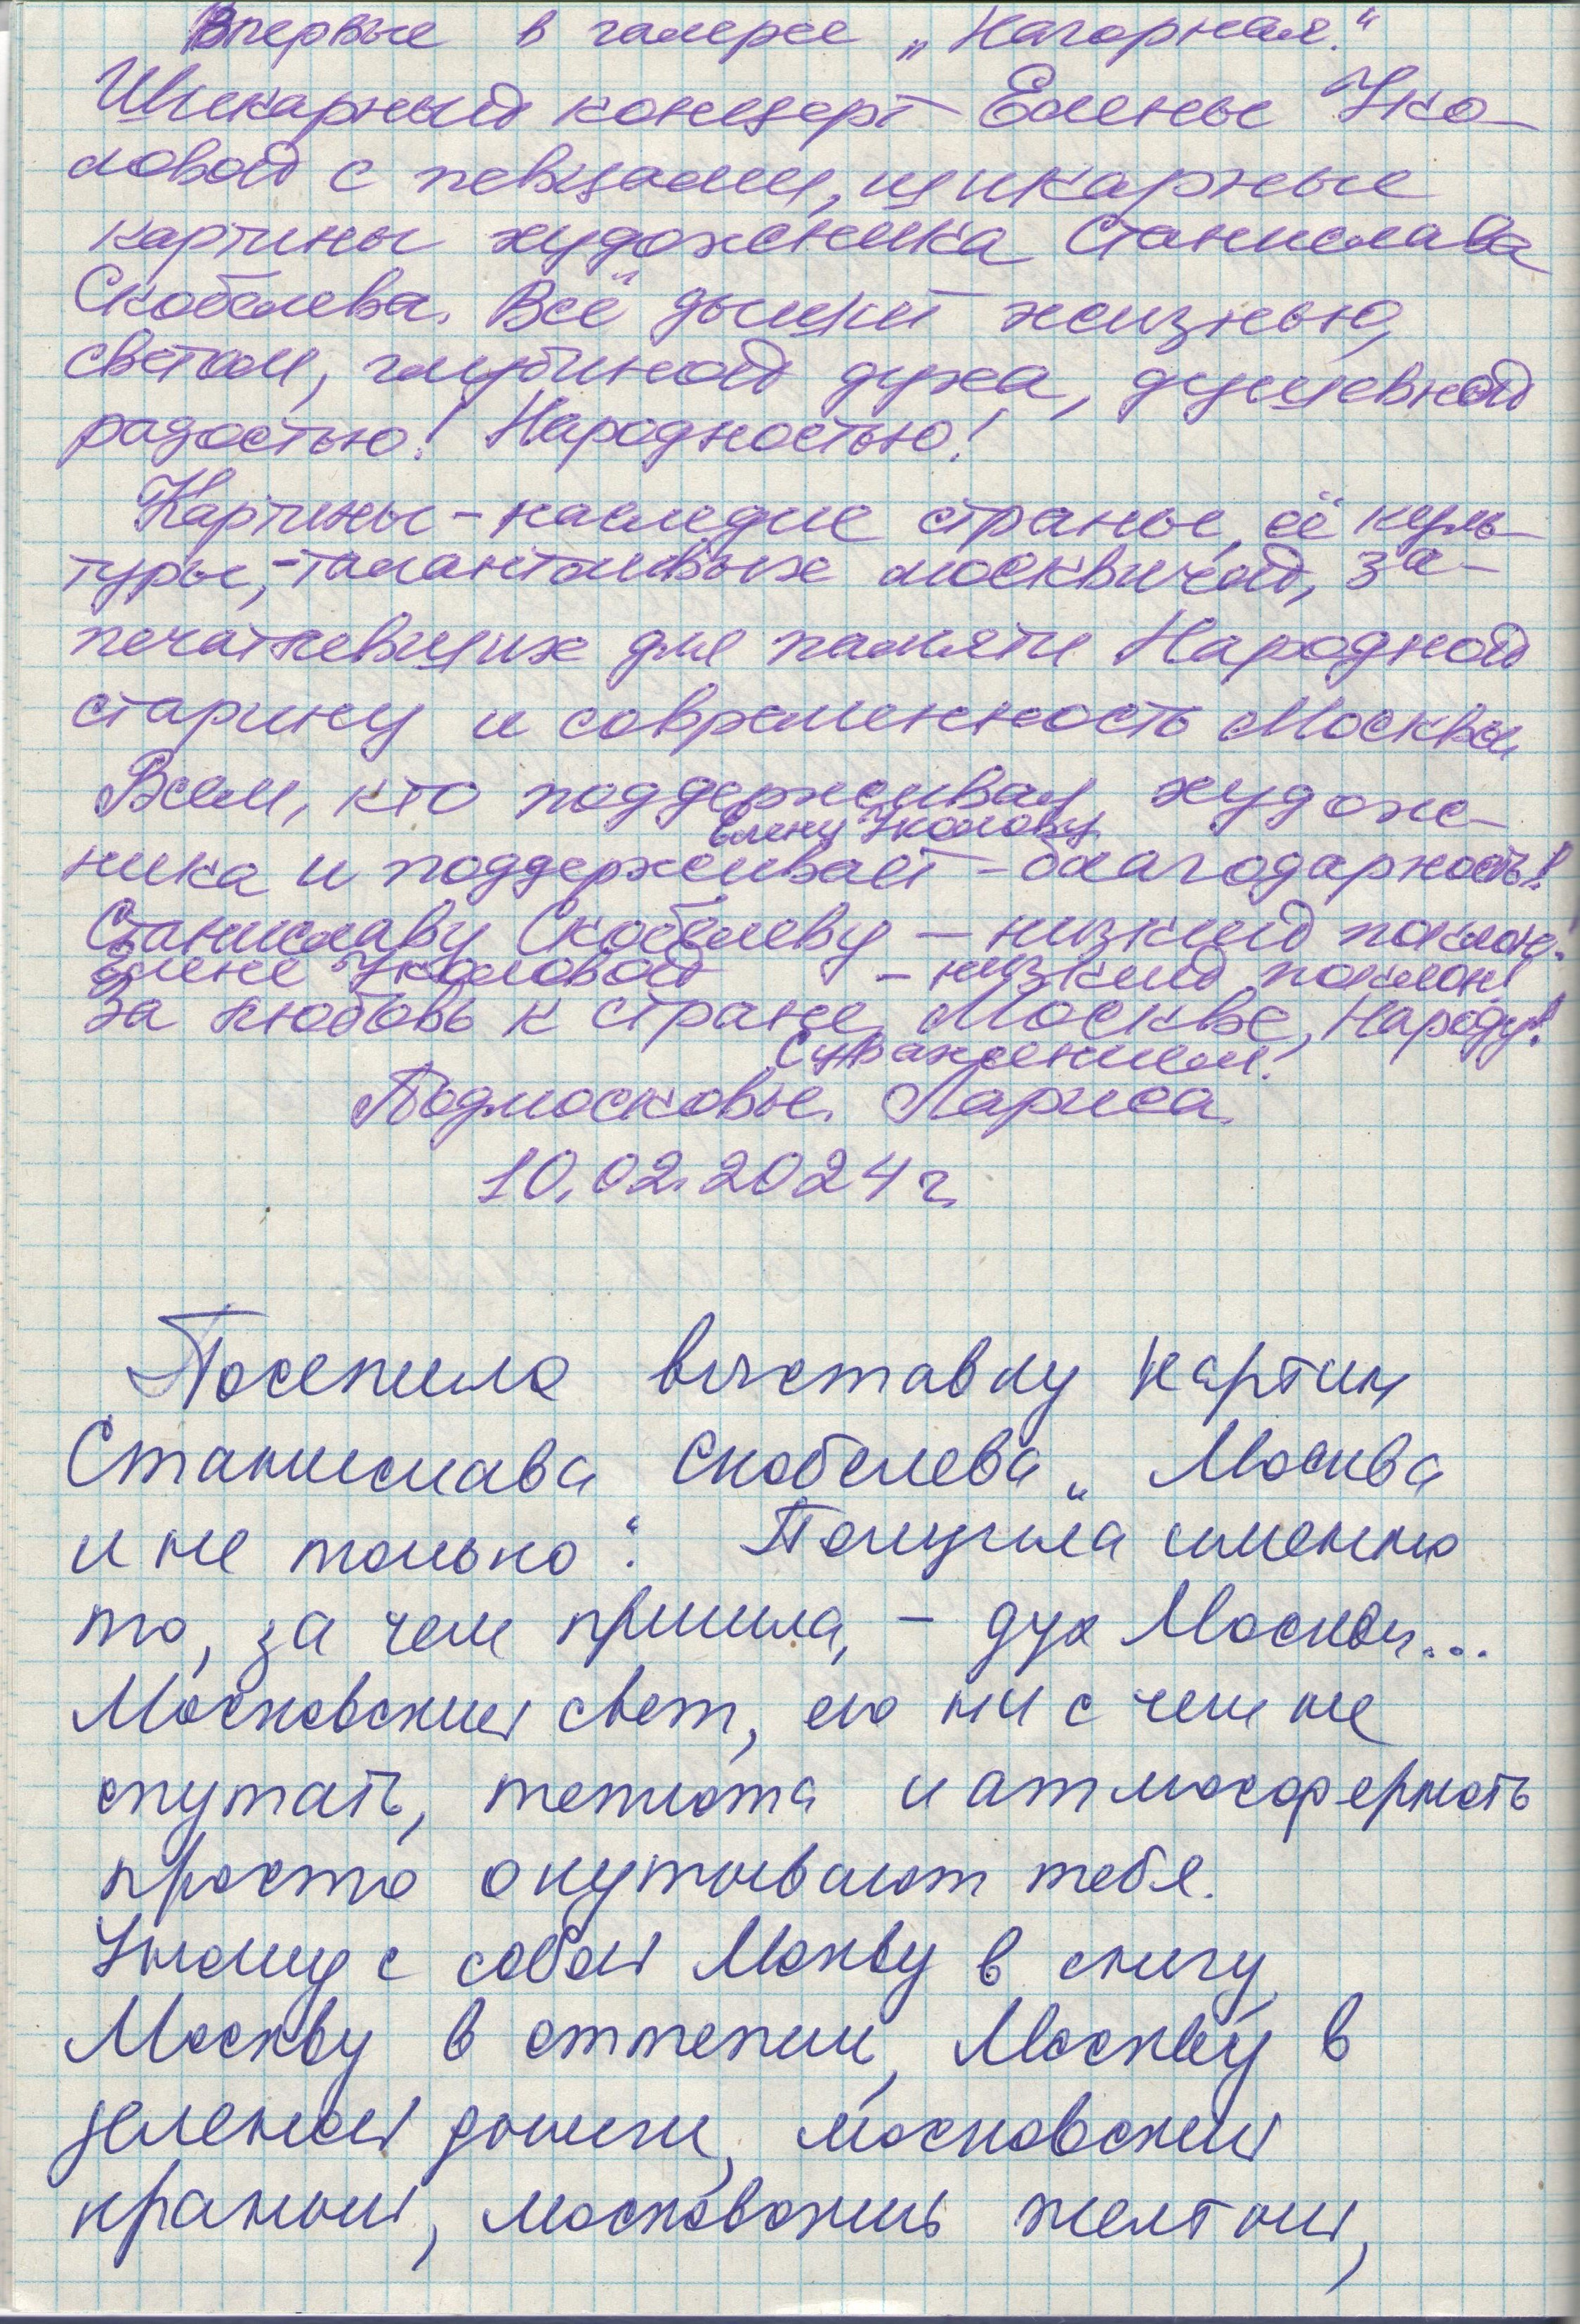 Впервые в галерее „Нагорная“.
Шикарный концерт Елены Уко-
ловой с певцами, шикарные
картины художника Станислава
Скобелева. Всё дышит жизнью,
светом, глубиной духа, душевной
радостью! Народностью!
Картины – наследие страны, её куль-
туры, – талантливых москвичей, за-
печатлевших для памяти Народной
старину и современность Москвы
Всем, кто поддерживал худож-
Елену Уколову
ника и поддерживает – благодарность!
Станиславу Скобелеву – низкий поклон!
Елене Уколовой – низкий поклон!
За любовь к стране, Москве, Народу!
С уважением!
Подмосковье. Лариса.
10.02.2024 г.
Посетила выставку картин
Станислава Скобелева „Москва
и не только“. Получила именно
то, за чем пришла, – дух Москвы...
Московский свет, его ни с чем не
спутать, теплота и атмосферность
просто окутывают тебя.
Уношу с собой Москву в снегу,
Москву в оттепели, Москву в
зеленой дымке, московский
красный, московский желтый,